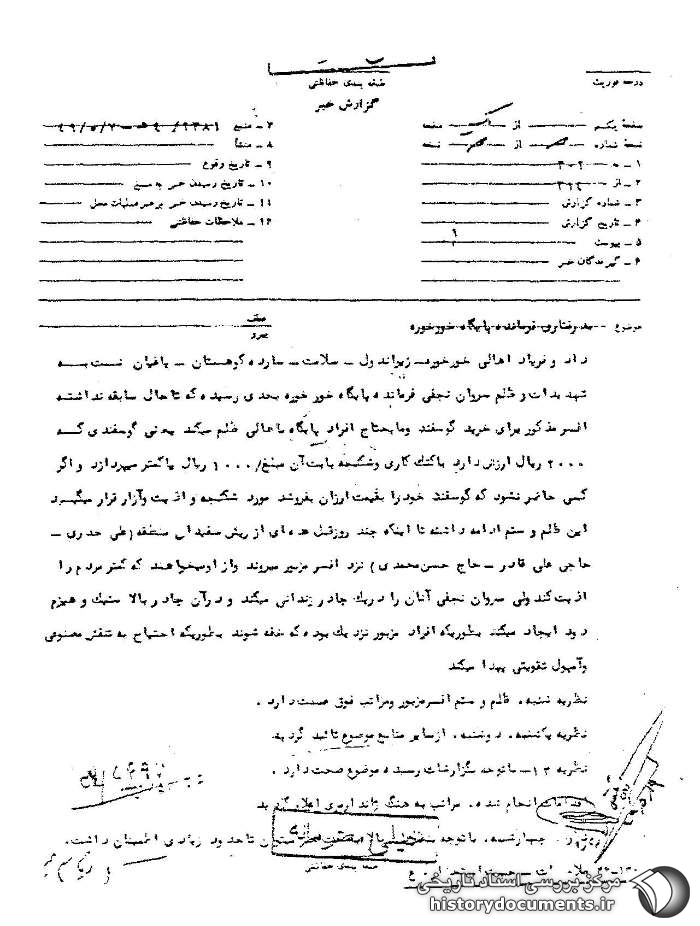 درجه فوریت
طبقه بندی حفاظتی
گزارش خبر
صفحه یکم از یک صفحه
نسخه شماره از نسخه
۱ ـ به ۳۰۲
۲ ـ از
۳ ـ شماره گزارش
۴ ـ تاریخ گزارش
۵ ـ پیوست
۶ ـ گیرندگان خبر
۷ ـ منبع
۸ ـ منشأ
۹ ـ تاریخ وقوع
۱۰ ـ تاریخ رسیدن خبر به منبع
۱۱ ـ تاریخ رسیدن خبر برهبر عملیات محل
۱۲ ـ ملاحظات حفاظتی
موضوع بدرفتاری فرمانده پایگاه خورخوره
عطف
پیرو
داد و فریاد اهالی خورخوره ـ زیواندول ـ سلامت ـ سارده کوهستان ـ باغیان نسبت به
تهدیدات و ظلم سروان نجفی فرمانده پایگاه خورخوره بحدی رسیده که تا حال سابقه نداشته
افسر مذکور برای خرید گوسفند ومایحتاج افراد پایگاه باهالی ظلم میکند یعنی گوسفندی که
۲۰۰۰ ریال ارزش دارد باکتک کاری وشکنجه بابت آن مبلغ /۱۰۰۰ ریال یاکمتر میپردازد و اگر
کسی حاضر نشود که گوسفند خود را بقیمت ارزان بفروشد مورد شکنجه و اذیت وآزار قرار میگیرد
این ظلم و ستم ادامه داشته تا اینکه چند روزقبل عده ای از ریش سفیدان منطقه (علی حدری ـ
حاجی علی قادر ـ حاج حسن محمدی) نزد افسر مزبور میروند واز اومیخواهند که کمتر مردم را
اذیت کند ولی سروان نجفی آنان را دریک چادر زندانی میکند و درآن چادر بالاستیک و هیزم
دود ایجاد میکند بطوریکه افراد مزبور نزدیک بوده که خفه شوند بطوریکه احتیاج به تنفس مصنوعی
وآمپول تقویتی پیدا میکند
نظریه شنبه. ظلم و ستم افسرمزبور ومراتب فوق صحت دارد .
نظریه یکشنبه. دوشنبه. ازسایر منابع موضوع تائید گردید
نظریه ۱۳ـ باتوجه بگزارشات رسیده موضوع صحت دارد .
اقدامات انجام شده. مراتب به هنگ ژاندارمری اعلام گردید
چهارشنبه. باتوجه تاحدود زیادی اطمینان داشت.
خیلی محرمانه
طبقه بندی حفاظتی
مرکز بررسی اسناد تاریخی
historydocuments.ir